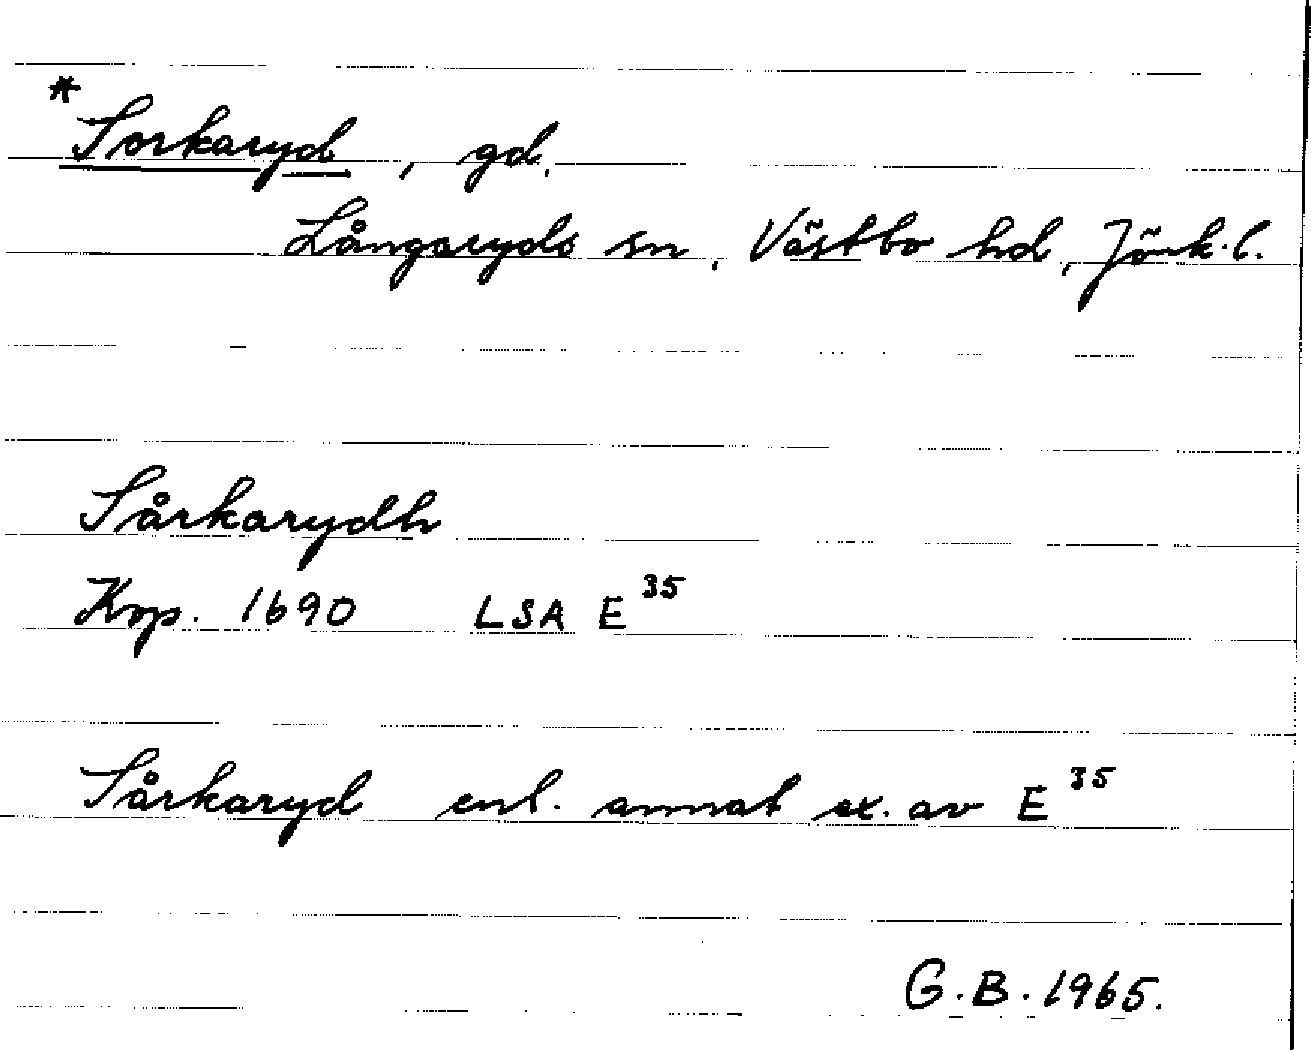 *Sorkaryd, gd,
Långaryds sn, Västbo hd, Jönk.l.
Sårkarydh
Kop. 1690 LSA E 35
Sårkaryd enl. annat ex. av E 35
G.B. 1965.